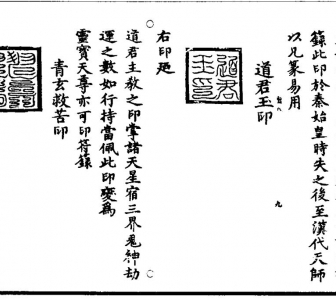 籙此印於秦始皇時失之後至漢代天師
以凡篆易用
道君玉印
九
道君玉印
右印廼
道君主教之印掌諸天星宿三界鬼神劫
運之數如行持當佩此印變為
靈寶天尊亦可印符籙
青玄救苦印